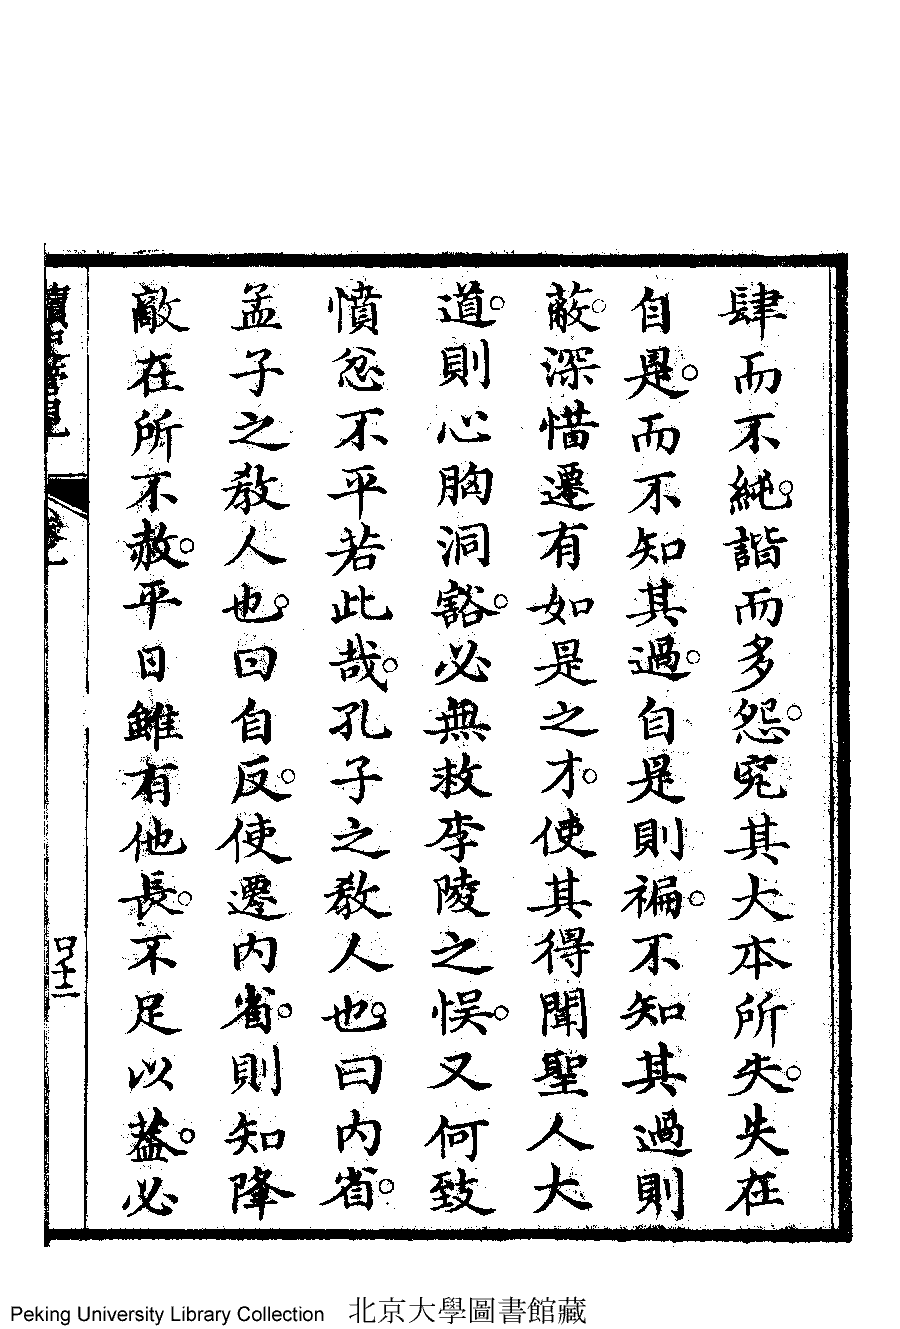 肆而不純。諧而多怨。究其大本所失。失在
自是。而不知其過。自是則褊。不知其過則
蔽。深惜遷有如是之才。使其得聞聖人大
道。則心胸洞豁。必無救李陵之悞。又何致
憤忿不平若此哉。孔子之敎人也。曰內省。
孟子之敎人也。曰自反。使遷內省。則知降
敵在所不赦。平日雖有他長。不足以葢。必
讀史管見
卷一
四十二
Peking University Library Collection 北京大學圖書館藏